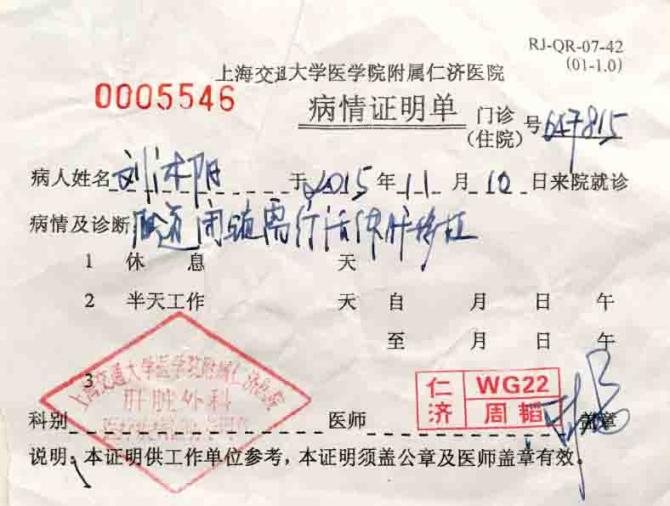 RJ-QR-07-42
(01-1.0)
上海交通大学医学院附属仁济医院
0005546
病情证明单
门诊
(住院)
号 657815
病人姓名 刘沐阳 于 2015 年 11 月 10 日来院就诊
病情及诊断 胆道闭锁需行活体肝移植
1 休 息 天
2 半天工作 天 自 月 日 午
至 月 日 午
3
上海交通大学医学院附属仁济医院
肝脏外科
仁济 WG22 周韬
科别 医师 盖章
说明:本证明供工作单位参考,本证明须盖公章及医师盖章有效。